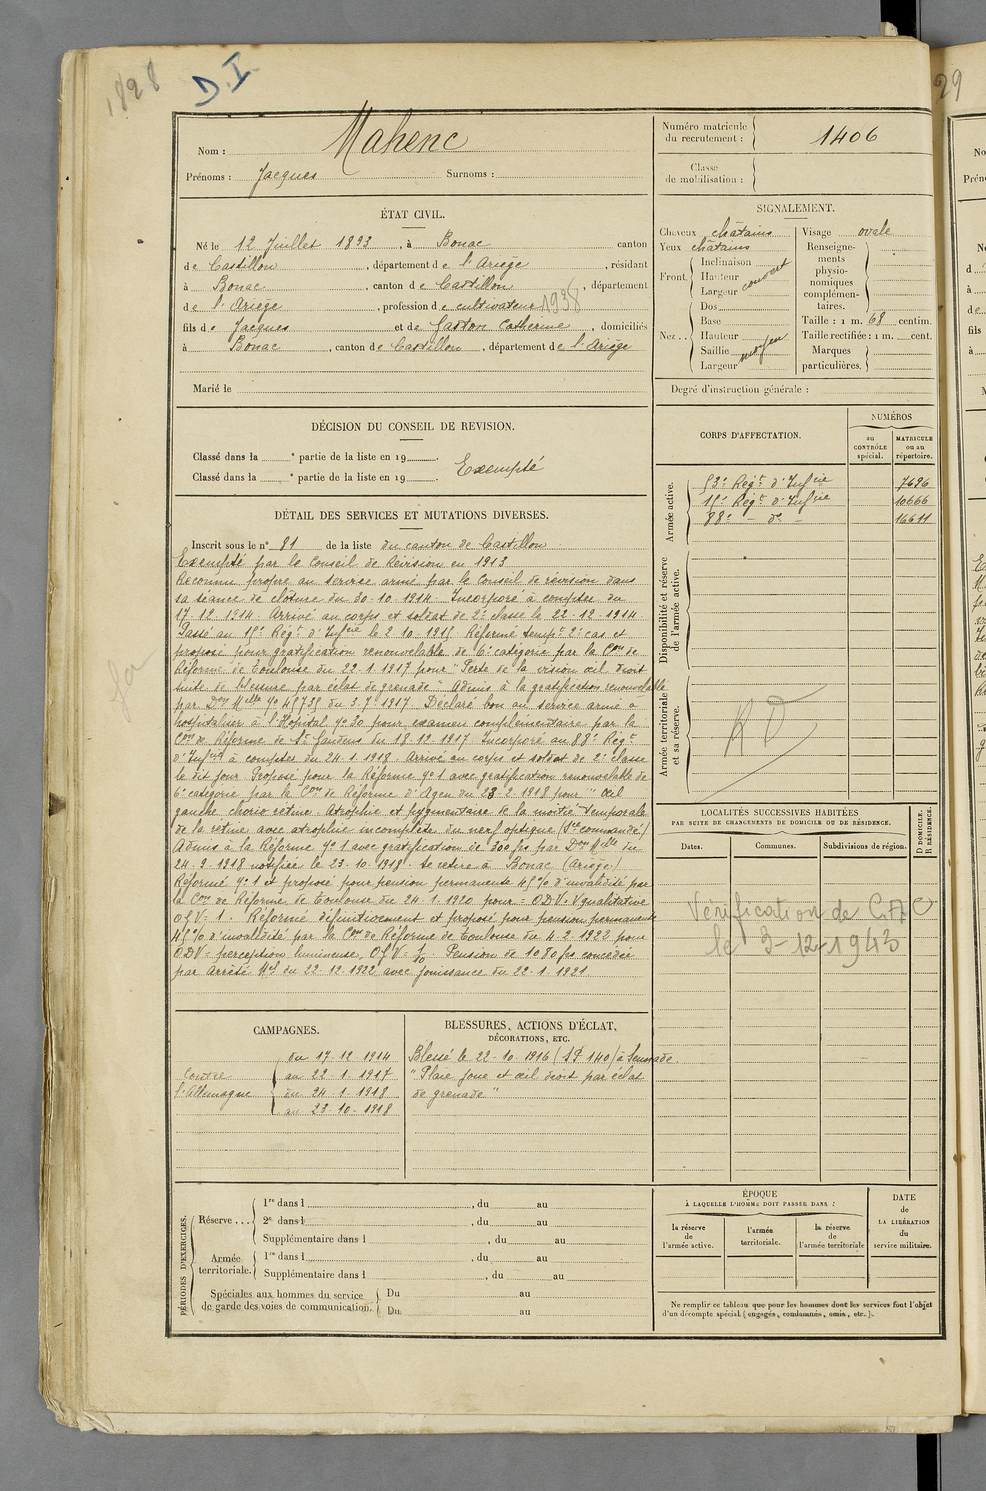 1828
D.I.
29
Nom : Mahenc
Prénoms : Jacques Surnoms :
Numéro matricule du recrutement : 1406
Classe de mobilisation :
ÉTAT CIVIL.
Né le 12 Juillet 1893, à Bonac canton
de Castillon, département de l'Ariège, résidant
à Bonac, canton de Castillon, département
de l'Ariège, profession de cultivateur 1938
fils de Jacques et de Gaston Catherine, domiciliés
à Bonac, canton de Castillon, département de l'Ariège
Marié le
SIGNALEMENT.
Cheveux châtains
Yeux châtains
Front. Inclinaison
Hauteur couvert
Largeur
Nez.. Dos
Base
Hauteur
Saillie moyen
Largeur
Visage ovale
Renseigne-
ments
physio-
nomiques
complémen-
taires.
Taille : 1 m. 68 centim.
Taille rectifiée : 1 m. cent.
Marques
particulières.
Degré d'instruction générale :
DÉCISION DU CONSEIL DE REVISION.
Classé dans la e partie de la liste en 19 .
Classé dans la e partie de la liste en 19 .
Exempté
CORPS D'AFFECTATION.
NUMÉROS
au CONTRÔLE spécial.
MATRICULE ou au répertoire.
Armée active.
53e Régt d'Infrie 7696
15e Régt d'Infrie 10666
88e - do - 16611
Disponibilité et réserve de l'armée active.
Armée territoriale et sa réserve.
RD
DÉTAIL DES SERVICES ET MUTATIONS DIVERSES.
Inscrit sous le n° 81 de la liste du canton de Castillon
Exempté par le Conseil de Révision en 1913
Reconnu propre au service armé par le Conseil de révision dans
sa séance de clôture du 30-10-1914. Incorporé à compter du
17-12-1914 Arrivé au corps et soldat de 2e classe le 22-12-1914
Passé au 15e Régt d'Infrie le 2-10-1915 Réformé tempre 2e cas et
proposé pour gratification renouvelable de 6e catégorie par la Con de
Réforme de Toulouse du 22-1-1917 pour "Perte de la vision œil droit
suite de blessure par éclat de grenade" Admis à la gratification renouvelable
par Don Mlle No 45735 du 3-7-1917. Déclaré bon au service armé à
hospitaliser à l'Hôpital No 30 pour examen complémentaire par la
Con de Réforme de St Gaudens du 18-12-1917 Incorporé au 88e Régt
d'Infrie à compter du 24-1-1918. Arrivé au corps et soldat de 2e classe
le dit jour. Proposé pour la Réforme No 1 avec gratification renouvelable de
6e catégorie par la Con de Réforme d'Agen du 23-2-1918 pour "œil
gauche chorio rétine. Atrophie et pygmentaire de la moitié temporale
de la rétine avec atrophie incomplète du nerf optique
Admis à la Réforme No 1 avec gratification de 300 frs par Don Mlle du
24-9-1918 notifiée le 23-10-1918. Se retire à Bonac (Ariège)
Réformé No 1 et proposé pour pension permanente 45% d'invalidité par
la Con de Réforme de Toulouse du 24-1-1920 pour = ODV = V qualitative
OgV = 1. Réformé définitivement et proposé pour pension permanente
45% d'invalidité par la Con de Réforme de Toulouse du 4-2-1922 pour
ODV = perception lumineuse, OgV = Pension de 1080 frs concédée
par Arrêté Mel du 22-12-1922 avec jouissance du 22-1-1921.
LOCALITÉS SUCCESSIVES HABITÉES
PAR SUITE DE CHANGEMENTS DE DOMICILE OU DE RÉSIDENCE.
Dates. Communes. Subdivisions de région.
D DOMICILE.
R RÉSIDENCE.
Vérification de C.A.O
le 3-12-1943
CAMPAGNES.
Contre l'Allemagne
du 17-12-1914
au 22-1-1917
du 24-1-1918
au 23-10-1918
BLESSURES, ACTIONS D'ÉCLAT,
DÉCORATIONS, ETC.
Blessé le 22-10-1916 (SP 140) à
"Plaie joue et œil droit par éclat
de grenade"
PÉRIODES D'EXERCICES.
Réserve ...
1re dans l , du au
2e dans l , du au
Supplémentaire dans l , du au
Armée territoriale.
1re dans l , du au
Supplémentaire dans l , du au
Spéciales aux hommes du service
de garde des voies de communication.
Du au
Du au
ÉPOQUE
À LAQUELLE L'HOMME DOIT PASSER DANS :
la réserve de l'armée active.
l'armée territoriale.
la réserve de l'armée territoriale
DATE
de
LA LIBÉRATION
du
service militaire.
Ne remplir ce tableau que pour les hommes dont les services font l'objet
d'un décompte spécial (engagés, condamnés, omis, etc.).